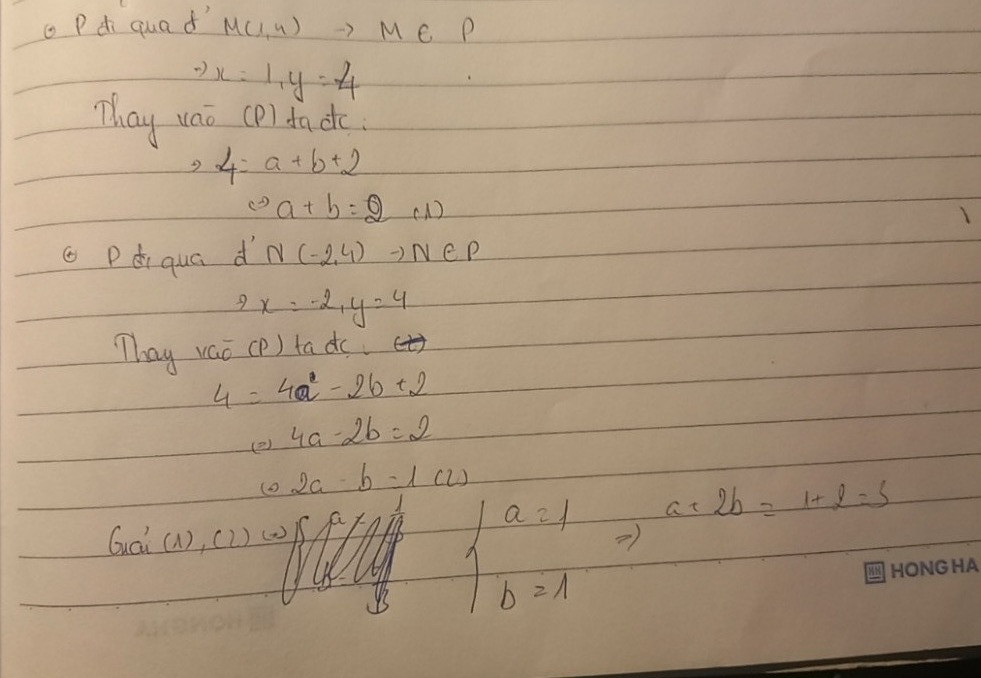 ⊙ P đi qua đ' M(1,4) → M ∈ P
→ x = 1, y = 4
Thay vaõ (P) ta đc :
→ 4 = a + b + 2
⇔ a + b = 2 (1)
⊙ P đi qua đ' N (-2,4) → N ∈ P
→ x = -2, y = 4
Thay vaõ (P) ta đc .
4 = 4a - 2b + 2
⇔ 4a - 2b = 2
⇔ 2a - b = 1 (2)
Giải (1), (2) ⇔ { a = 1 ⇒ a + 2b = 1 + 2 = 3
b = 1
HONG HA